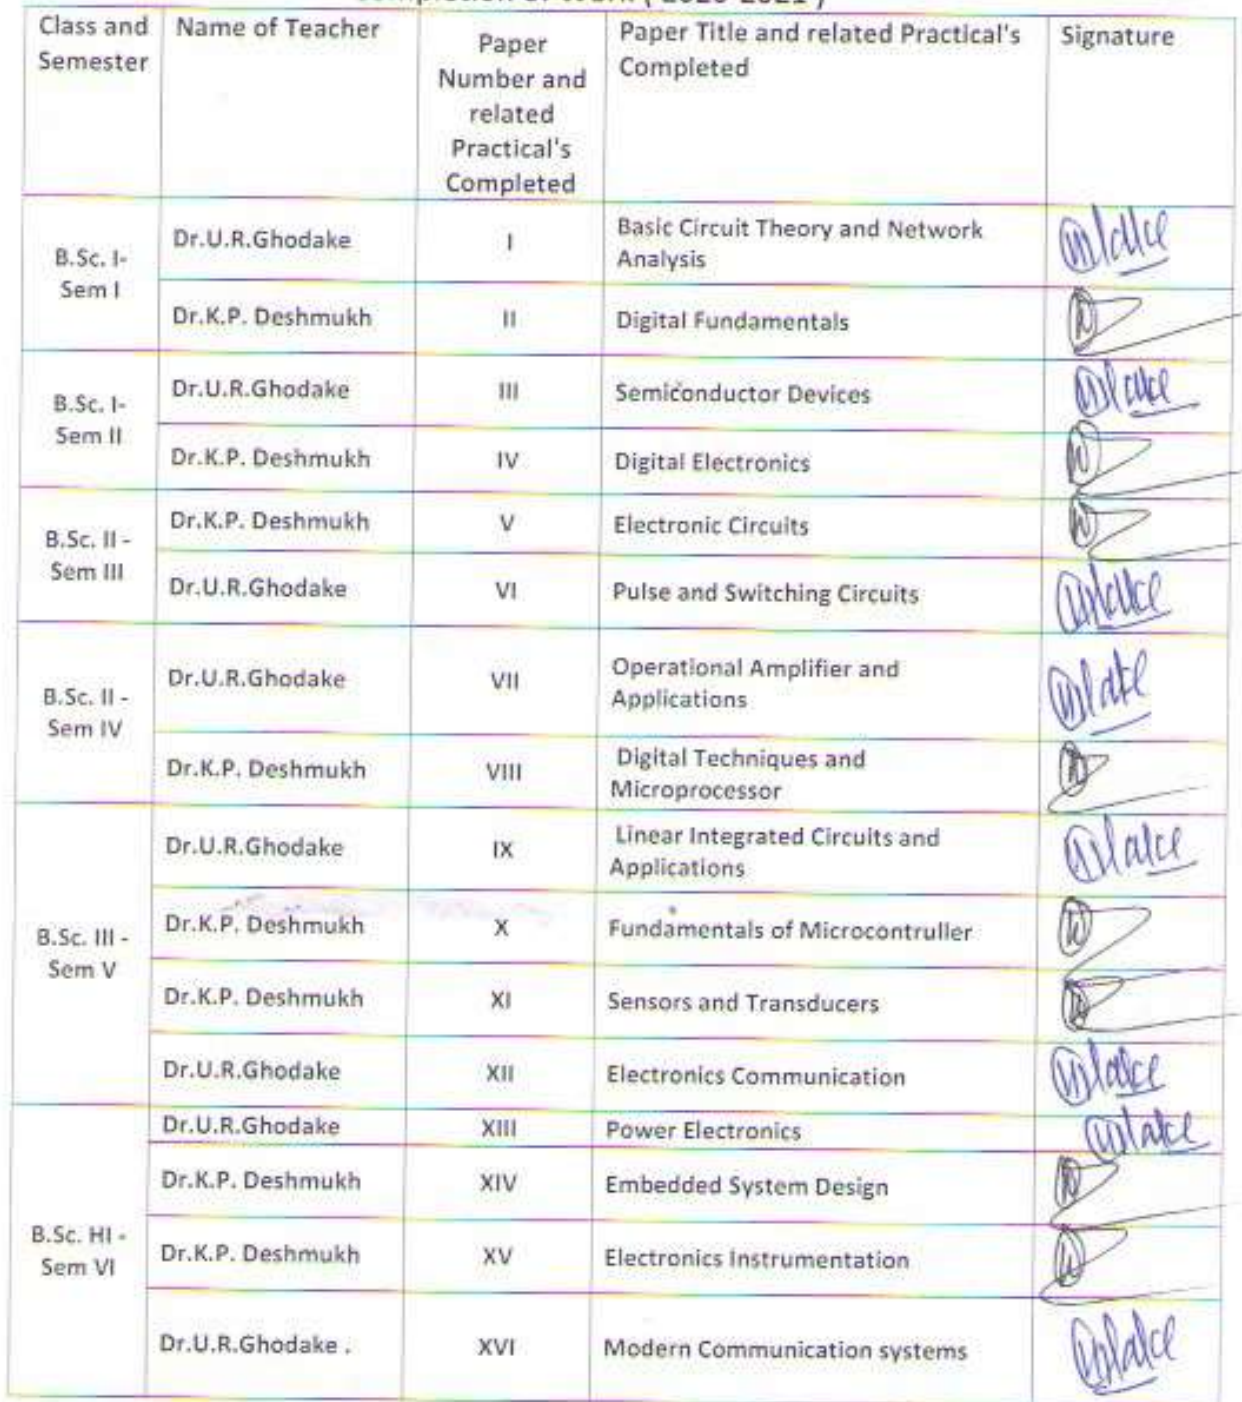 Completion of Work ( 2020-2021 )
Class and Semester | Name of Teacher | Paper Number and related Practical's Completed | Paper Title and related Practical's Completed | Signature
B.Sc. I- Sem I | Dr.U.R.Ghodake | I | Basic Circuit Theory and Network Analysis
Dr.K.P. Deshmukh | II | Digital Fundamentals
B.Sc. I- Sem II | Dr.U.R.Ghodake | III | Semiconductor Devices
Dr.K.P. Deshmukh | IV | Digital Electronics
B.Sc. II - Sem III | Dr.K.P. Deshmukh | V | Electronic Circuits
Dr.U.R.Ghodake | VI | Pulse and Switching Circuits
B.Sc. II - Sem IV | Dr.U.R.Ghodake | VII | Operational Amplifier and Applications
Dr.K.P. Deshmukh | VIII | Digital Techniques and Microprocessor
B.Sc. III - Sem V | Dr.U.R.Ghodake | IX | Linear Integrated Circuits and Applications
Dr.K.P. Deshmukh | X | Fundamentals of Microcontruller
Dr.K.P. Deshmukh | XI | Sensors and Transducers
Dr.U.R.Ghodake | XII | Electronics Communication
B.Sc. HI - Sem VI | Dr.U.R.Ghodake | XIII | Power Electronics
Dr.K.P. Deshmukh | XIV | Embedded System Design
Dr.K.P. Deshmukh | XV | Electronics Instrumentation
Dr.U.R.Ghodake . | XVI | Modern Communication systems